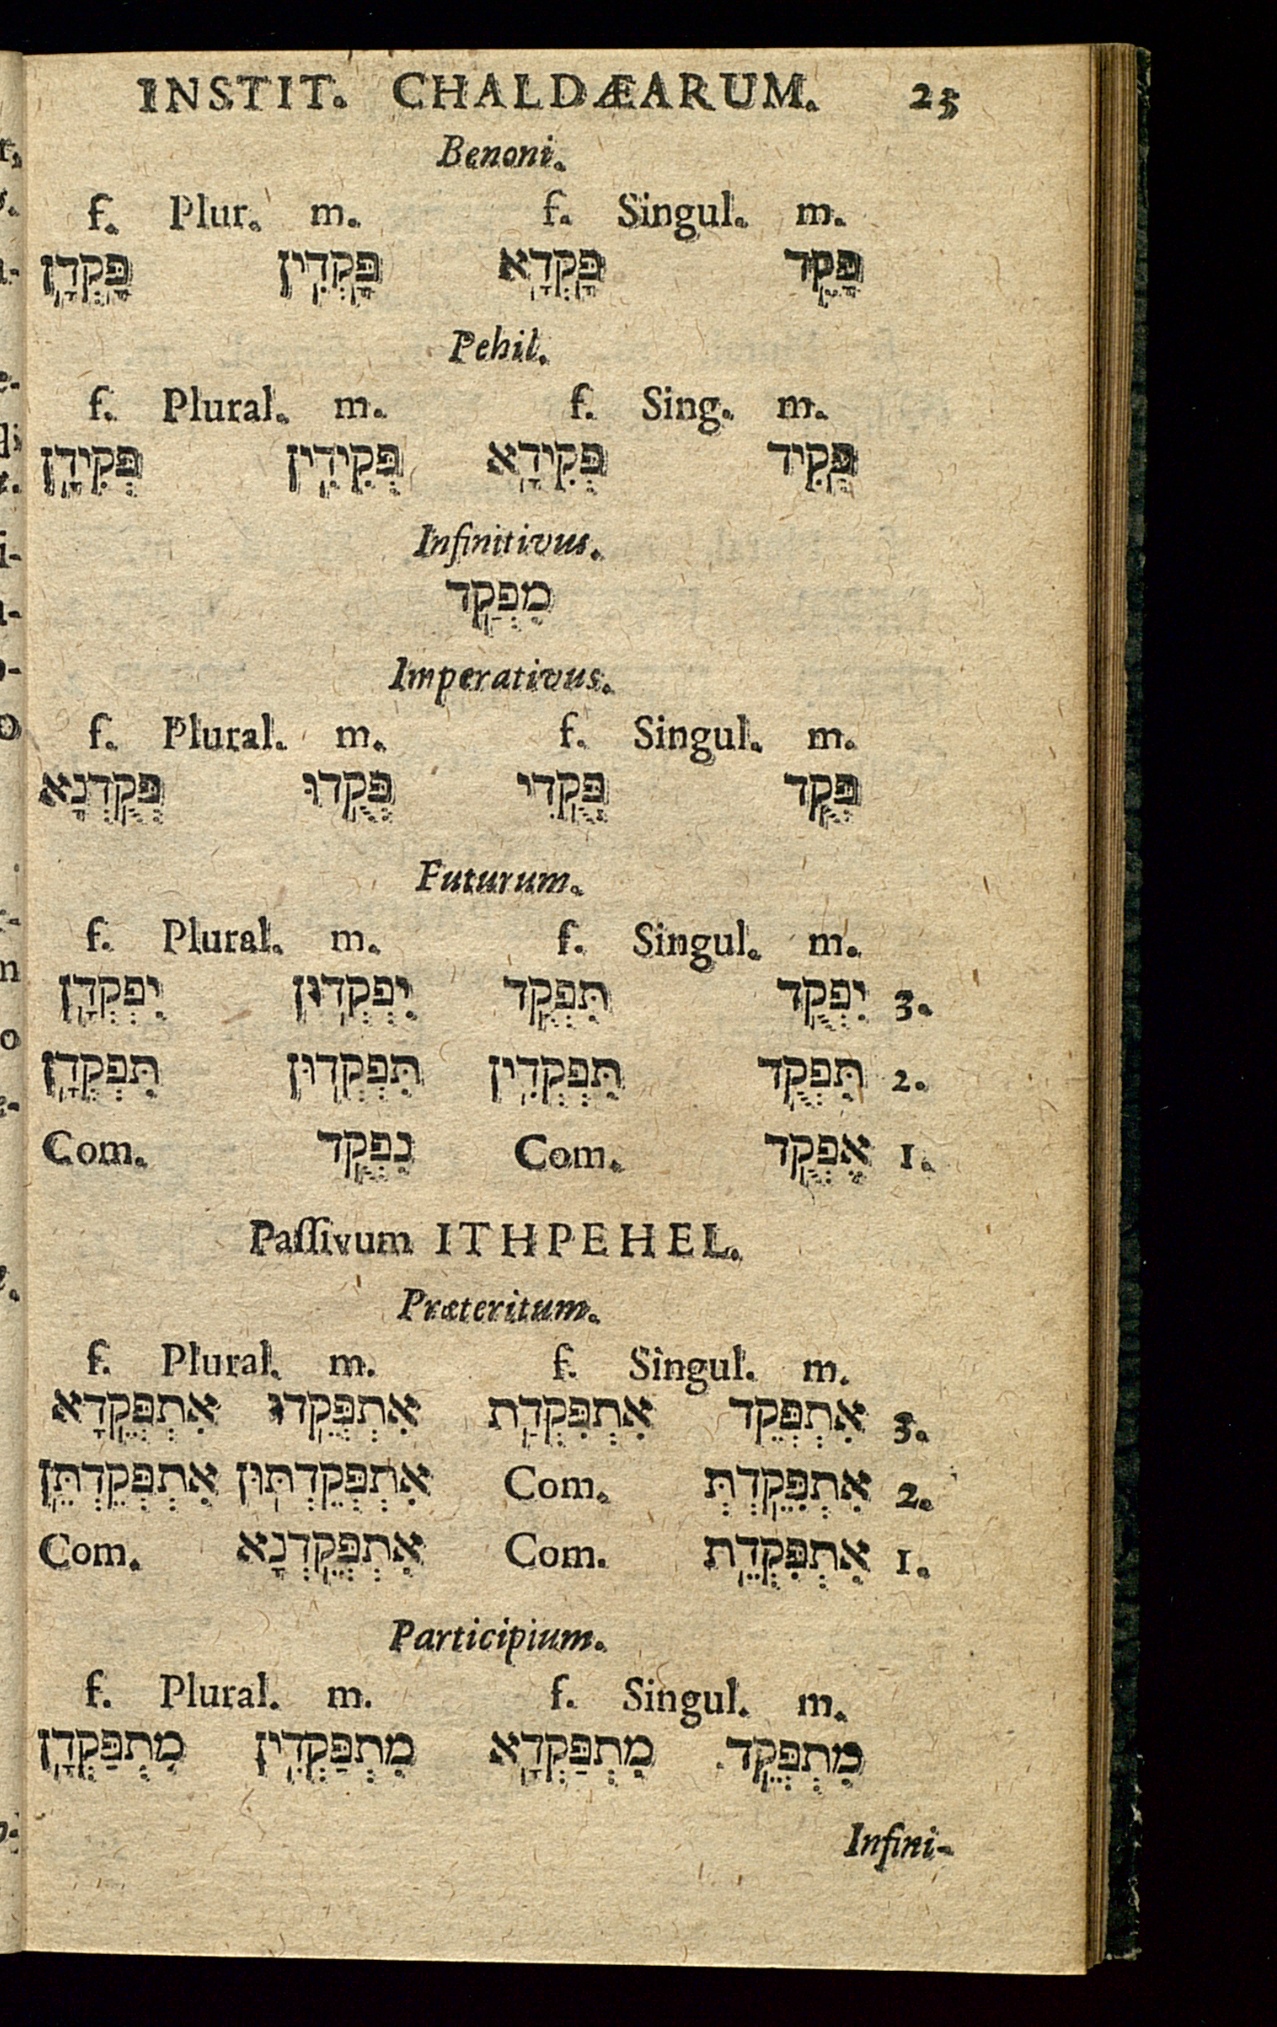 INSTIT. CHALDÆARUM. 25
Benoni.
f. Plur. m. f. Singul. m.
פָּקְדָן פָּקְדִין פָּקְדָא פָּקֵד
Pehil.
f. Plural. m. f. Sing. m.
פְּקִידָן פְּקִידִין פְּקִידָא פְּקִיד
Infinitivus.
מִפְקַד
Imperativus.
f. Plural. m. f. Singul. m.
פְּקֻדְנָא פְּקֻדוּ פְּקֻדִי פְּקֻד
Futurum.
f. Plural. m. f. Singul. m.
יִפְקְדָן יִפְקְדוּן תִּפְקֻד יִפְקֻד 3.
תִּפְקְדָן תִּפְקְדוּן תִּפְקְדִין תִּפְקֻד 2.
Com. נִפְקֻד Com. אֶפְקֻד 1.
Paſſivum ITHPEHEL.
Præteritum.
f. Plural. m. f. Singul. m.
אִתְפְּקֵדָא אִתְפְּקֵדוּ אִתְפִּקְדַת אִתְפְּקֵד 3.
אִתְפְּקֵדְתֵּן אִתְפְּקֵדְתּוּן Com. אִתְפִּקֵדְתְּ 2.
Com. אִתְפְּקֵדְנָא Com. אִתְפִּקְדֵת 1.
Participium.
f. Plural. m. f. Singul. m.
מִתְפַּקְדָן מִתְפַּקְדִין מִתְפַּקְדָא מִתְפְּקֵד
Infini-